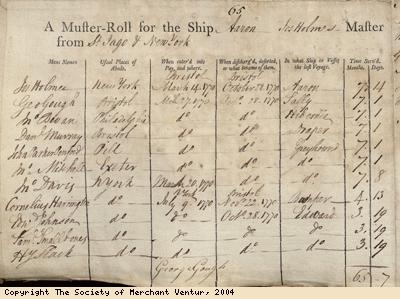 65
A Muster-Roll for the Ship Aaron Jas Holmes Master
from St Jago & New York
Mens Names Usual Places of Abode. When enter'd into Pay, and where. When discharg'd, deserted, or what became of them. In what Ship or Vessel the last Voyage. Time Serv'd. Months. Days.
Bristol Bristol
Jas Holmes New York March 14. 1770 October 28. 1770 Aaron 7. 14
Geo Gough Bristol 1770 28. 1770 Sally 7. 1
Philadelphia do do 7. 1
Danl Murray Bristol do do 7. 1
John Parker Pill do do Greyhound 7. 1
Mitchell Exeter do do do 7. 1
Davis N York March 20. 1770 do 7. 8
N York Bristol
Cornelius Harrington do July 9th 1770 Novr 22. 1770 4. 13
Johnson do do Octr 28. 1770 Edward 3. 19
Saml Smallbones do do do do 3. 19
Slack do do do do 3. 19
George Gough
65 - 7
Copyright The Society of Merchant Ventur, 2004